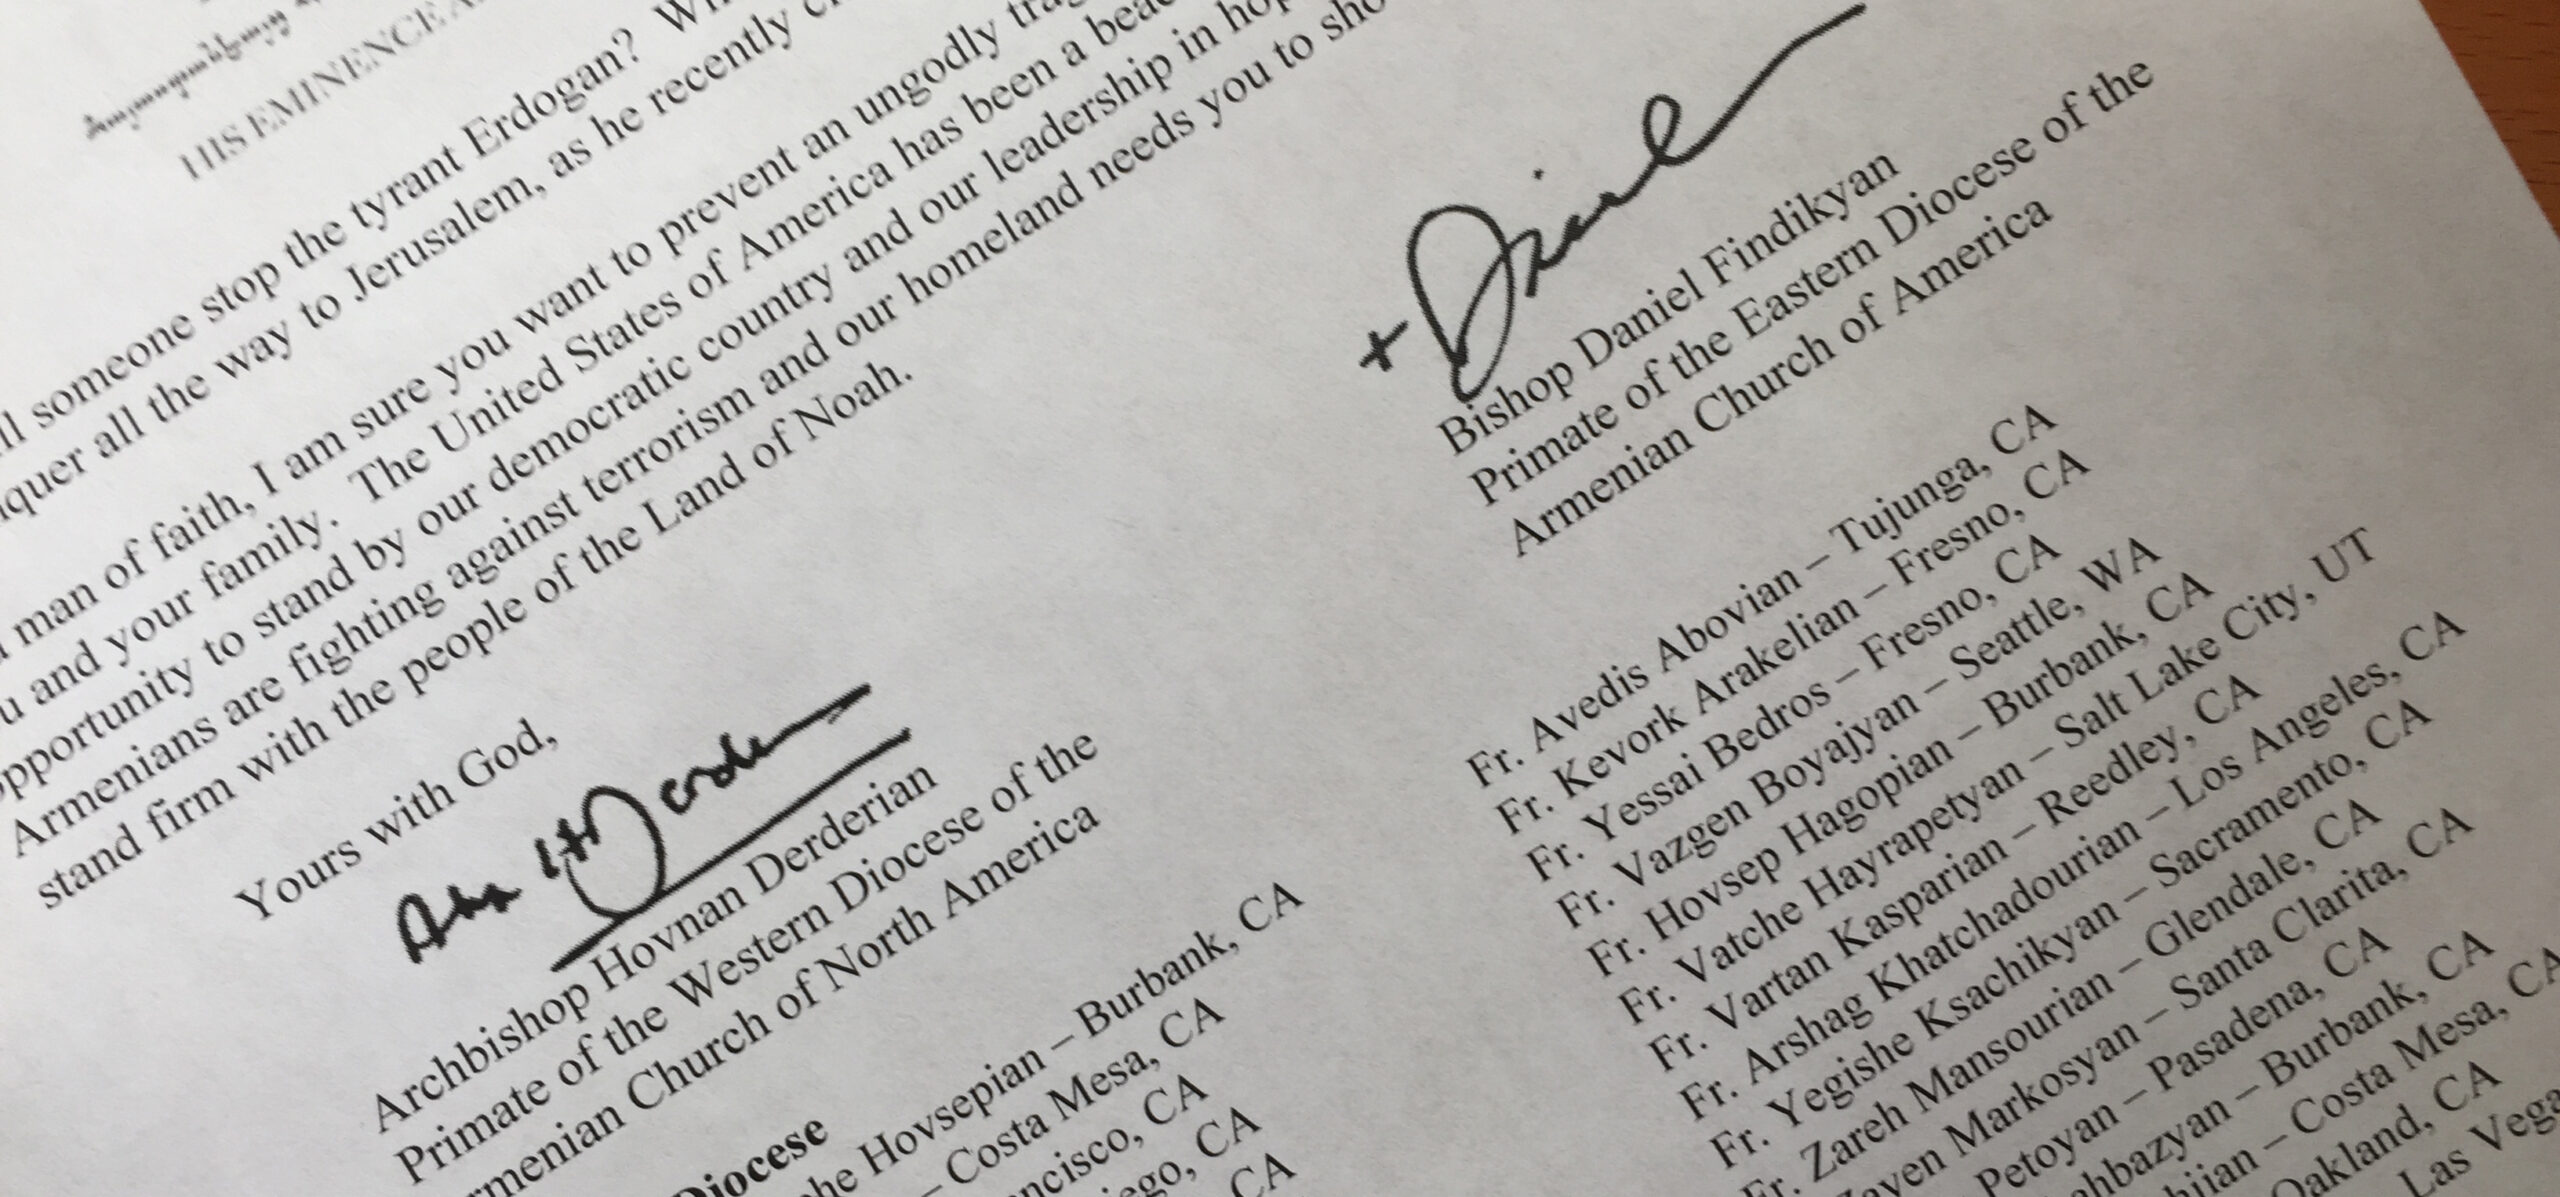 HIS EMINENCE
someone stop the tyrant Erdogan?
all the way to Jerusalem, as he recently
man of faith, I am sure you want to prevent an ungodly
and your family. The United States of America has been a
opportunity to stand by our democratic country and our leadership in
Armenians are fighting against terrorism and our homeland needs you to
stand firm with the people of the Land of Noah.
Yours with God,
Archbishop Hovnan Derderian
Primate of the Western Diocese of the
Armenian Church of North America
Diocese
Hovsepian – Burbank, CA
– Costa Mesa, CA
CA
CA
CA
+ Daniel
Bishop Daniel Findikyan
Primate of the Eastern Diocese of the
Armenian Church of America
Fr. Avedis Abovian – Tujunga, CA
Fr. Kevork Arakelian – Fresno, CA
Fr. Yessai Bedros – Fresno, CA
Fr. Vazgen Boyajyan – Seattle, WA
Fr. Hovsep Hagopian – Burbank, CA
Fr. Vatche Hayrapetyan – Salt Lake City, UT
Fr. Vartan Kasparian – Reedley, CA
Fr. Arshag Khatchadourian – Los Angeles, CA
Fr. Yegishe Ksachikyan – Sacramento, CA
Fr. Zareh Mansourian – Glendale, CA
Markosyan – Santa Clarita, CA
Petoyan – Pasadena, CA
– Burbank, CA
– Costa Mesa, CA
Oakland, CA
Las